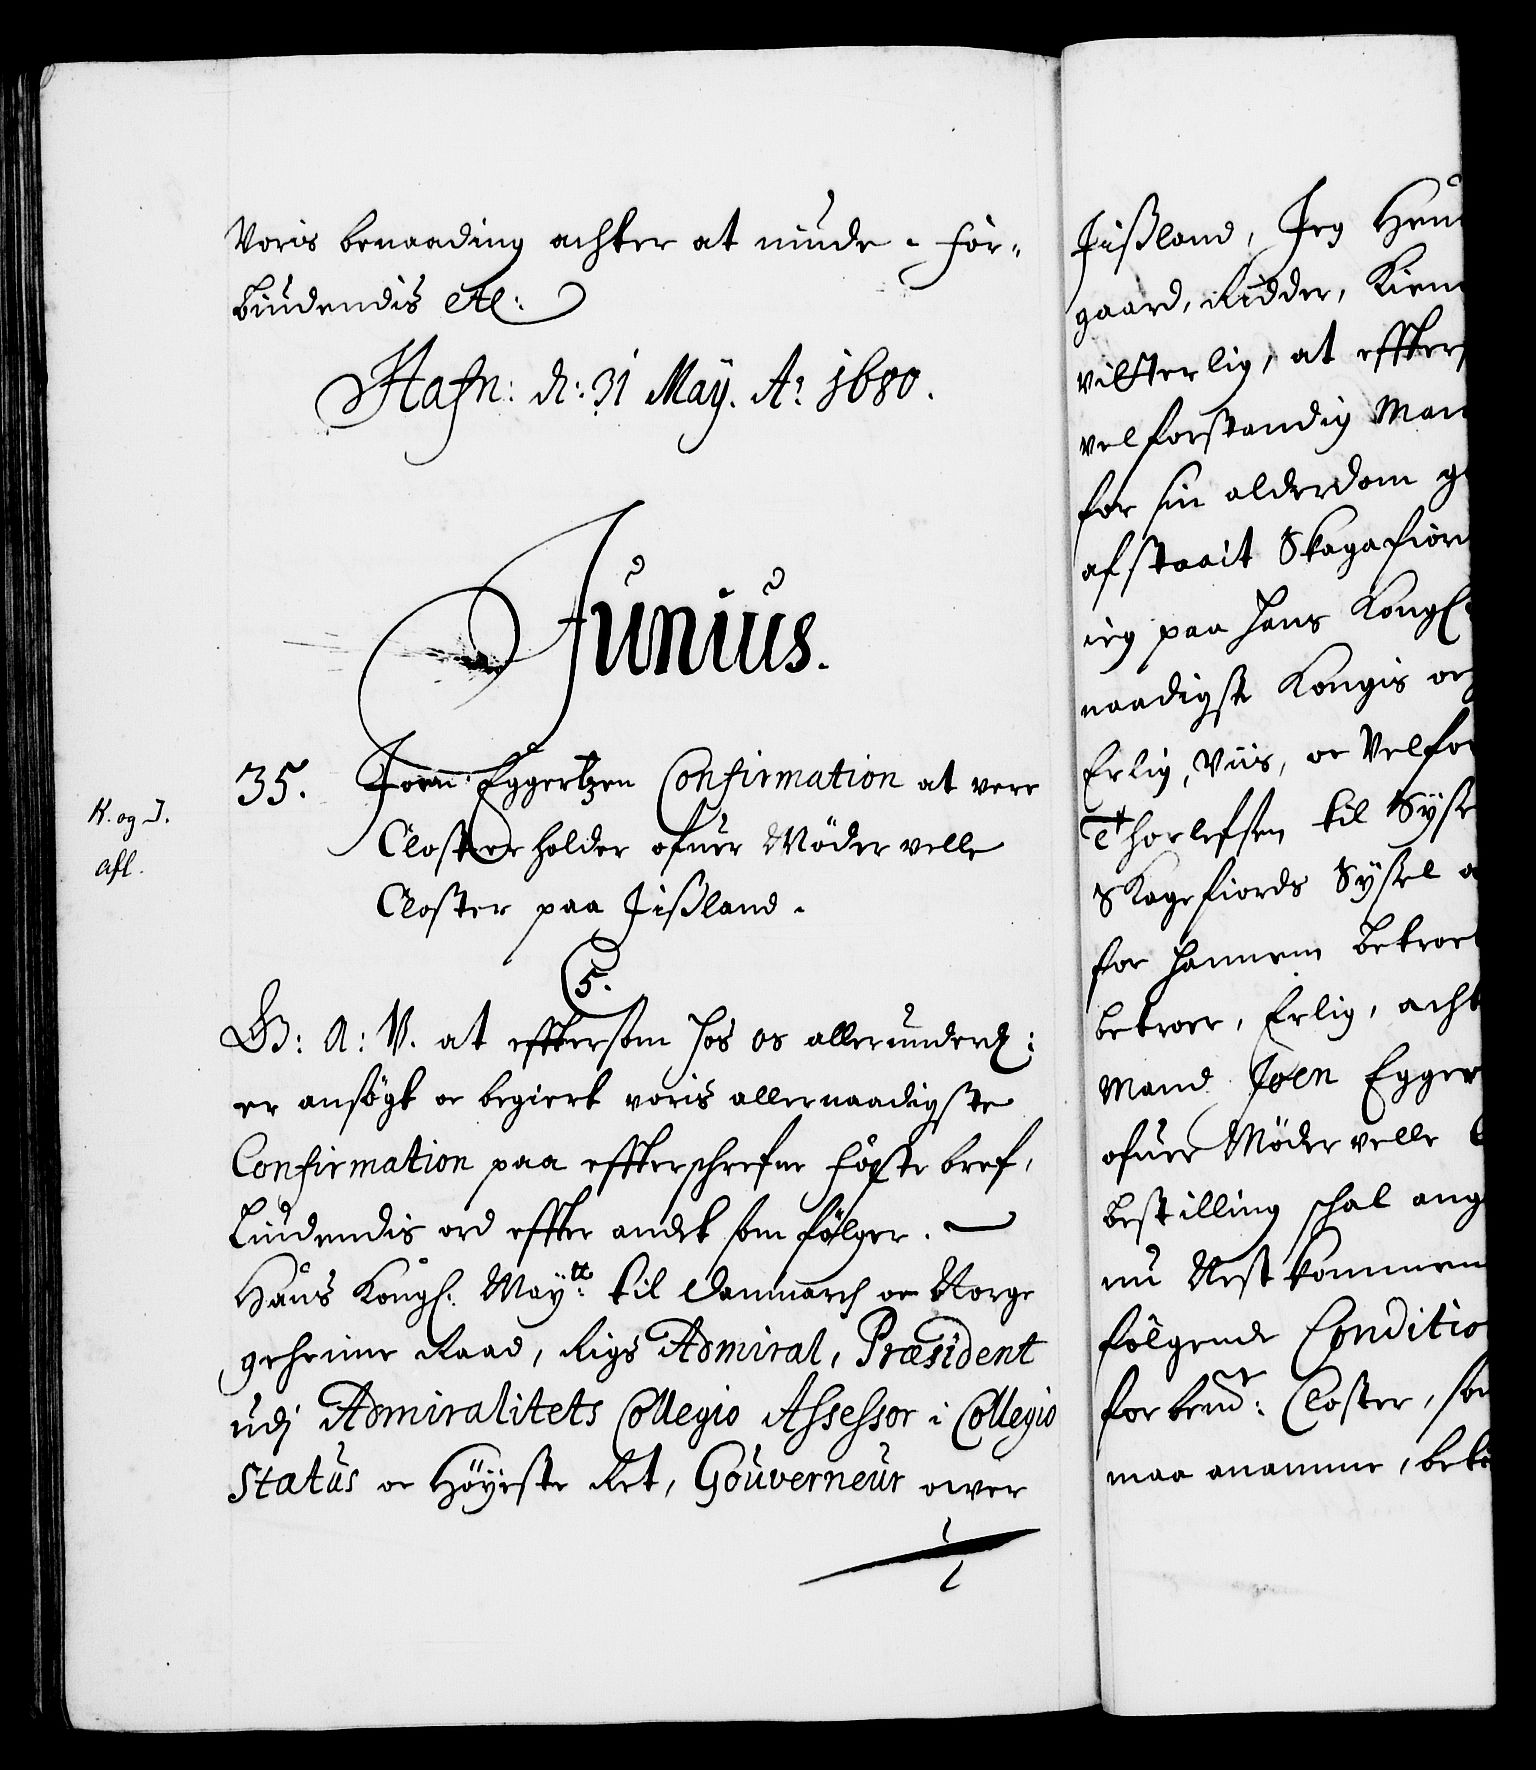 Voris benaading achter at niude. For-
biudendis etc:
Hafn: d: 31 May. Ao 1680.
Junius.
35. Joen Eggertzen Confirmation at vere
K. og I.
afl.
Closterholder ofuer Møder velle
Closter paa Jißland.
C5.
G: A: V. at effterson hos os allerunderd:
er ansøgt oc begiert voris allernaadigste
Confirmation paa effterschrefne feste bref,
Liudendis ord effter andet som følger.
Hans Kongl: Maytt: til Danmarch oc Norge
geheime Raad, Rigs Admiral, Præsident
udj Admiralitets Collegio Assessor i Collegio
Status oc Høyeste Ret, Gouverneur ower
Jißland, Jeg Hen
gaard, Ridder, Kien
vitterlig, at effter
velforstandig Man
for sin alderdom g
afstaait Skagafior
ieg paa hans Kongl
naadigste Kongis oc
Erlig, Viis, oc Velfor
Thorlefsen til Syse
Skagefiords Sysel
for hannem betroet
betroer, Erlig, acht
Mand Joen Egger
ofuer Møder velle
bestilling schal ang
nu Nest kommen
følgende Conditio
for bemt: Closter, so
maa anamme, bek